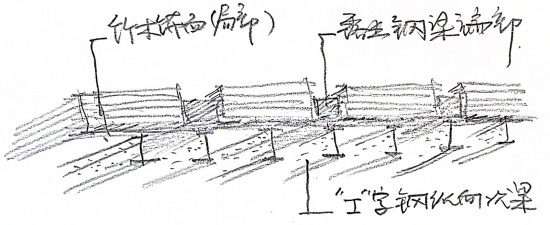 竹木饰面(局部)
悬挑钢梁端部
"工"字钢纵向次梁